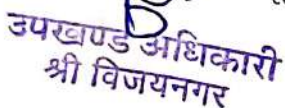 उपखण्ड अधिकारी
श्री विजयनगर